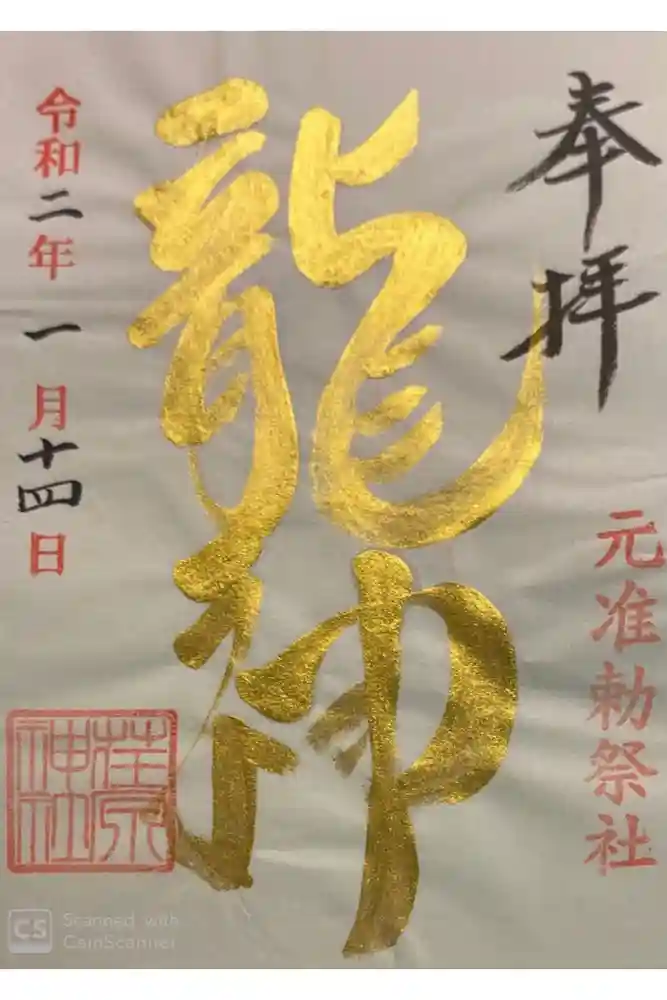 奉拝
元准勅祭社
龍神
令和二年一月十四日
荏原神社
CS Scanned with
CamScanner